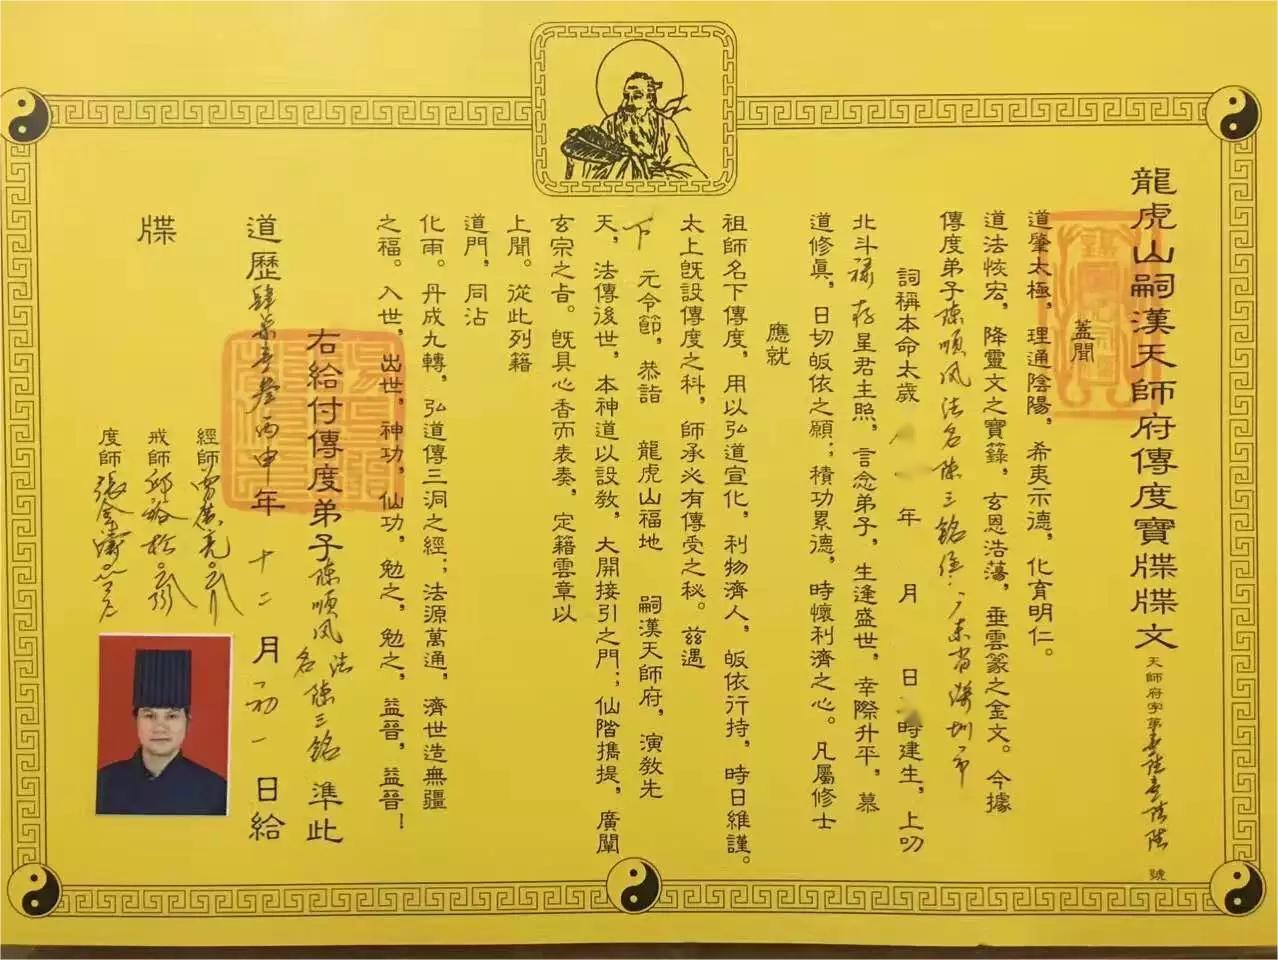 龍虎山嗣漢天師府傳度寶牒牒文
天師府字第 號
蓋聞
道肇太極，理通陰陽，希夷示德，化育明仁。
道法恢宏，降靈文之寶籙，玄恩浩蕩，垂雲篆之金文。今據
傳度弟子陳順风法名陳三銘係广东省深圳市
詞稱本命太歲 年 月 日 時建生，上叨
北斗禄存星君主照，言念弟子，生逢盛世，幸際升平，慕
道修眞，日切皈依之願；積功累德，時懷利濟之心。凡屬修士
應就
祖師名下傳度，用以弘道宣化，利物濟人，皈依行持，時日維謹。
太上旣設傳度之科，師承必有傳受之秘。茲遇
下元令節，恭詣 龍虎山福地 嗣漢天師府，演敎先
天，法傳後世，本神道以設敎，大開接引之門；仙階擕提，廣闡
玄宗之旨。旣具心香而表奏，定籍雲章以
上聞。從此列籍
道門，同沾
化雨。丹成九轉，弘道傳三洞之經；法源萬通，濟世造無疆
之福。入世，出世，神功，仙功，勉之，勉之，益晉，益晉！
右給付傳度弟子陳順风法名陳三銘 準此
道歷肆柒壹叁丙申年十二月初一日給
經師曾廣亮
戒師邱裕松
度師張金濤
牒